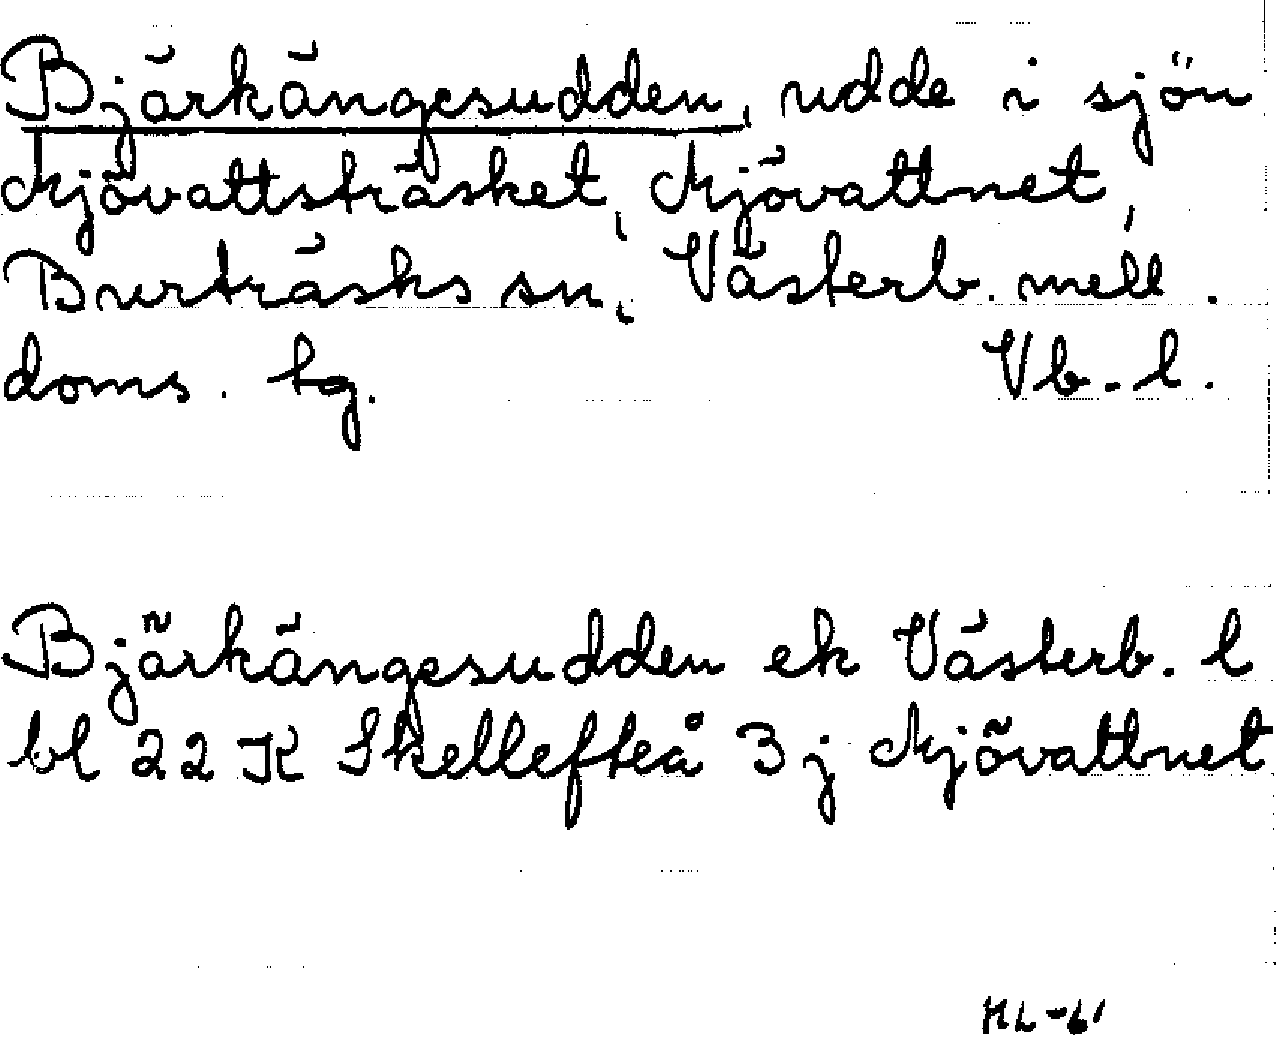 Bjärkängesudden, udde i sjön
Mjövattsträsket, Mjövattnet,
Burträsks sn, Västerb. mell.
doms. tg. Vb. l.
Bjärkängesudden ek Västerb. l
bl 22 K Skellefteå 3 j Mjövattnet
HL-61